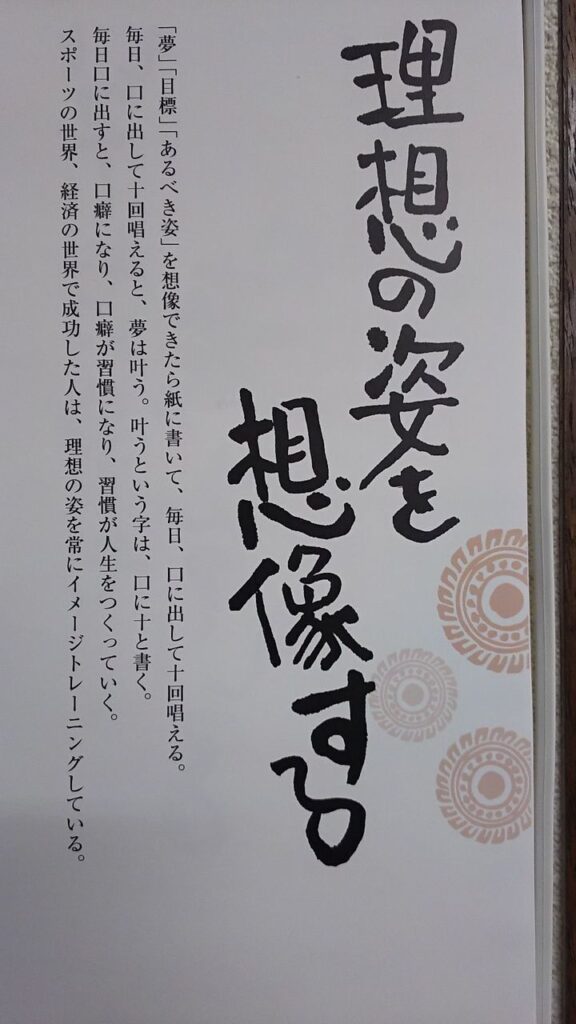 理想の姿を
想像する
「夢」「目標」「あるべき姿」を想像できたら紙に書いて、毎日、口に出して十回唱える。
毎日、口に出して十回唱えると、夢は叶う。叶うという字は、口に十と書く。
毎日口に出すと、口癖になり、口癖が習慣になり、習慣が人生をつくっていく。
スポーツの世界、経済の世界で成功した人は、理想の姿を常にイメージトレーニングしている。